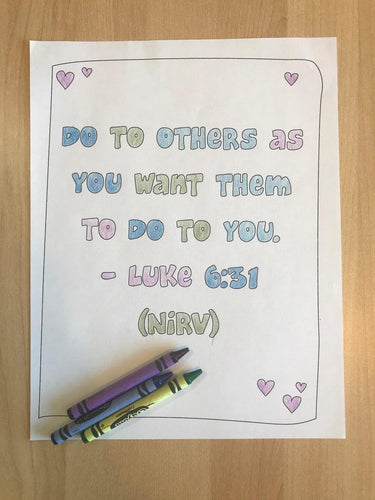 Do To Others as
You Want Them
To Do To You.
- Luke 6:31
(NiRV)